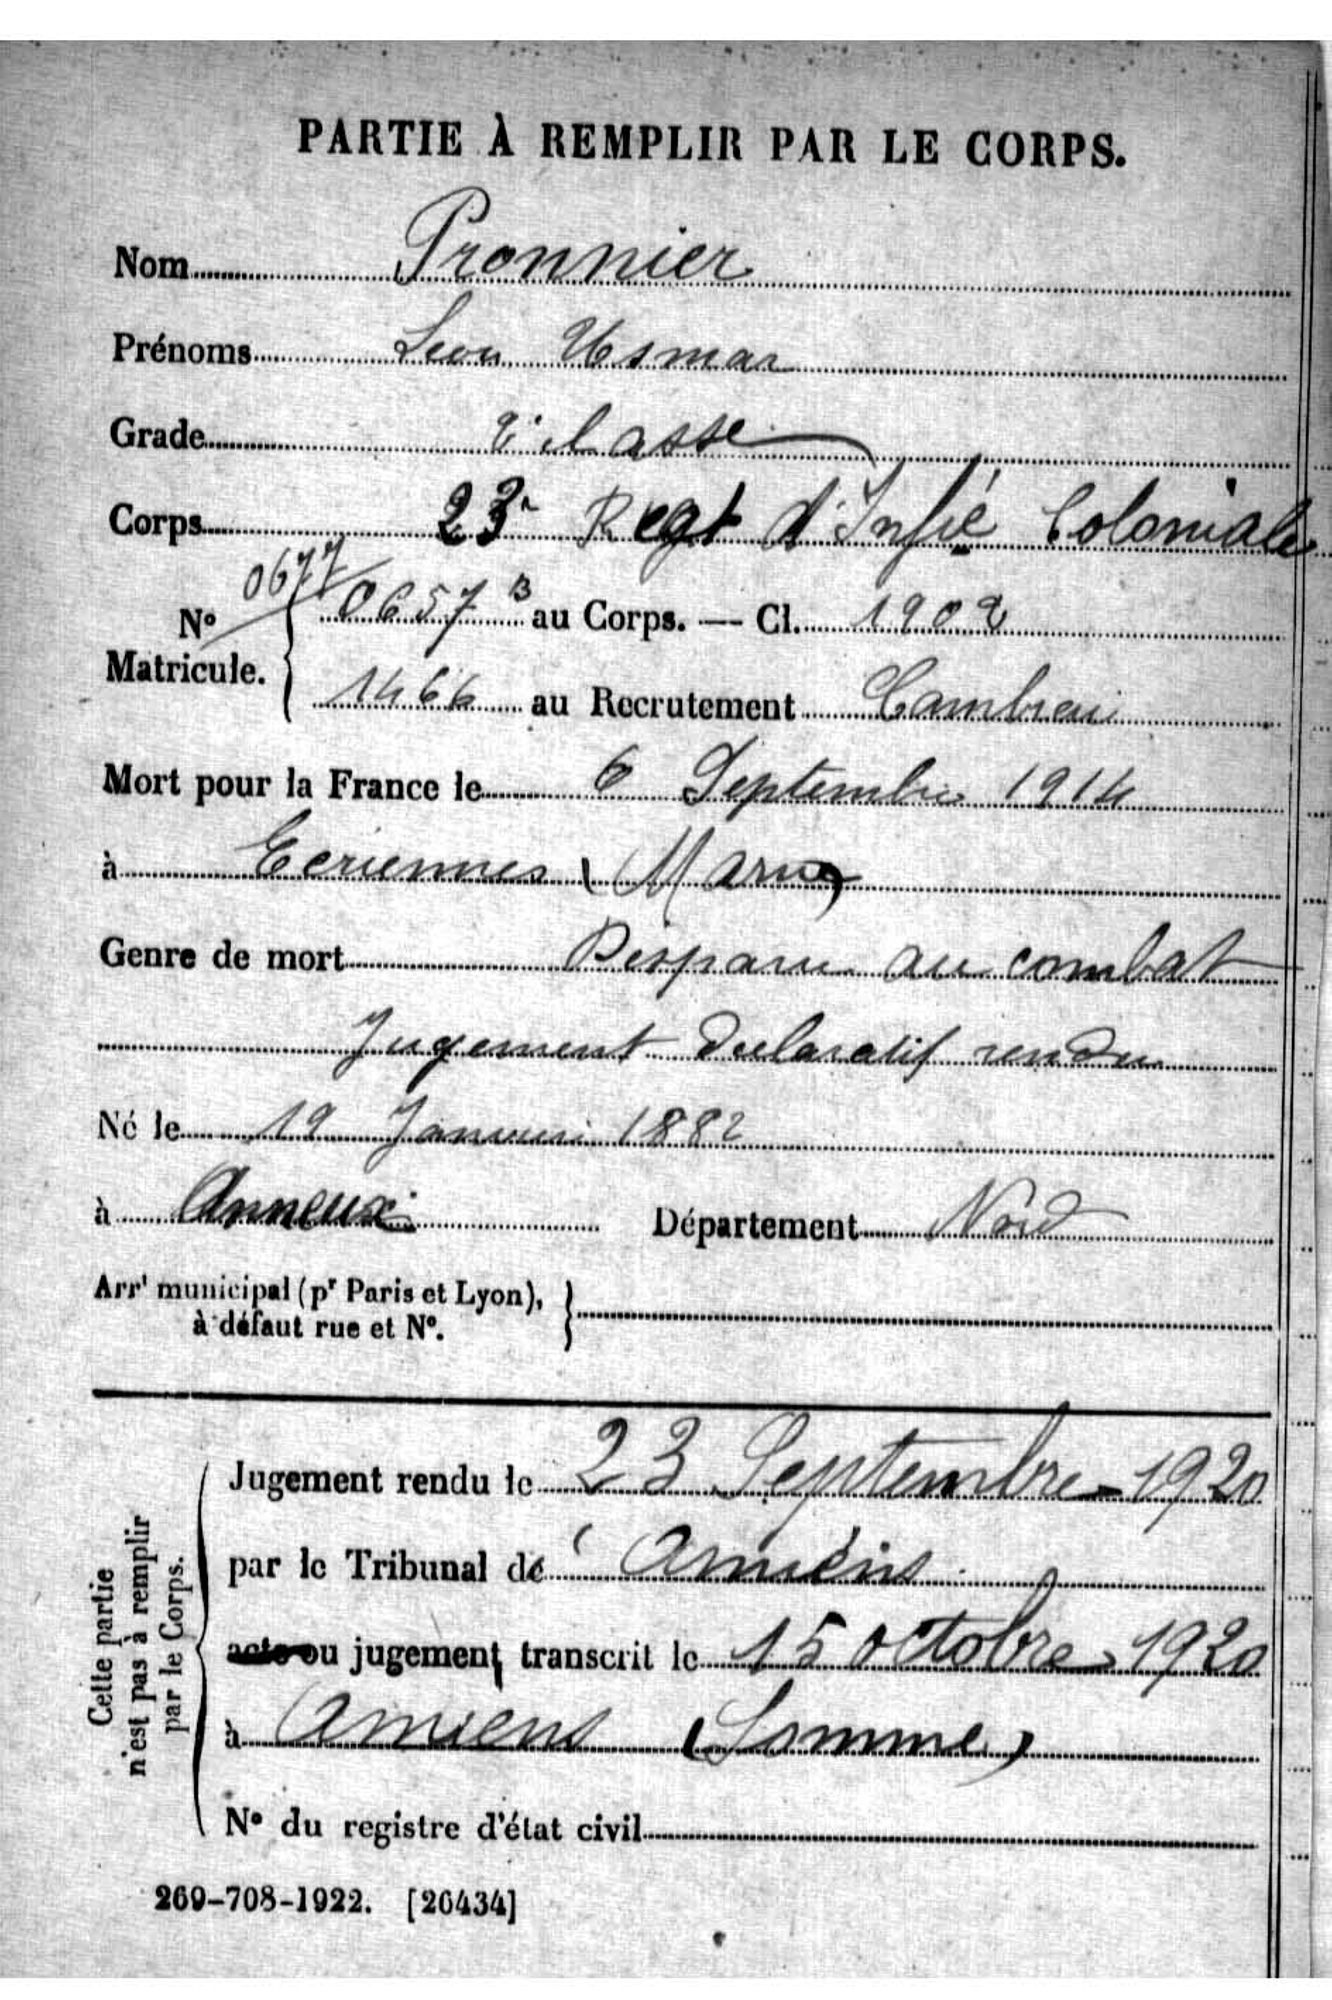 PARTIE À REMPLIR PAR LE CORPS.
Nom Pronnier
Prénoms Léon Usmar
Grade 2e classe
Corps 23e Regt d'Infie Coloniale
0677
No 0657 B au Corps. — Cl. 1902
Matricule. 1466 au Recrutement Cambrai
Mort pour la France le 6 Septembre 1914
à Ecriennes (Marne)
Genre de mort Disparu au combat
Jugement declaratif rendu
Né le 19 Janvier 1882
à Anneux Département Nord
Arrt municipal (pr Paris et Lyon),
à défaut rue et No.
Cette partie
n'est pas à remplir
par le Corps.
Jugement rendu le 23 Septembre 1920
par le Tribunal de Amiens
acte ou jugement transcrit le 15 octobre 1920
à Amiens (Somme)
No du registre d'état civil
269-708-1922. [26434]